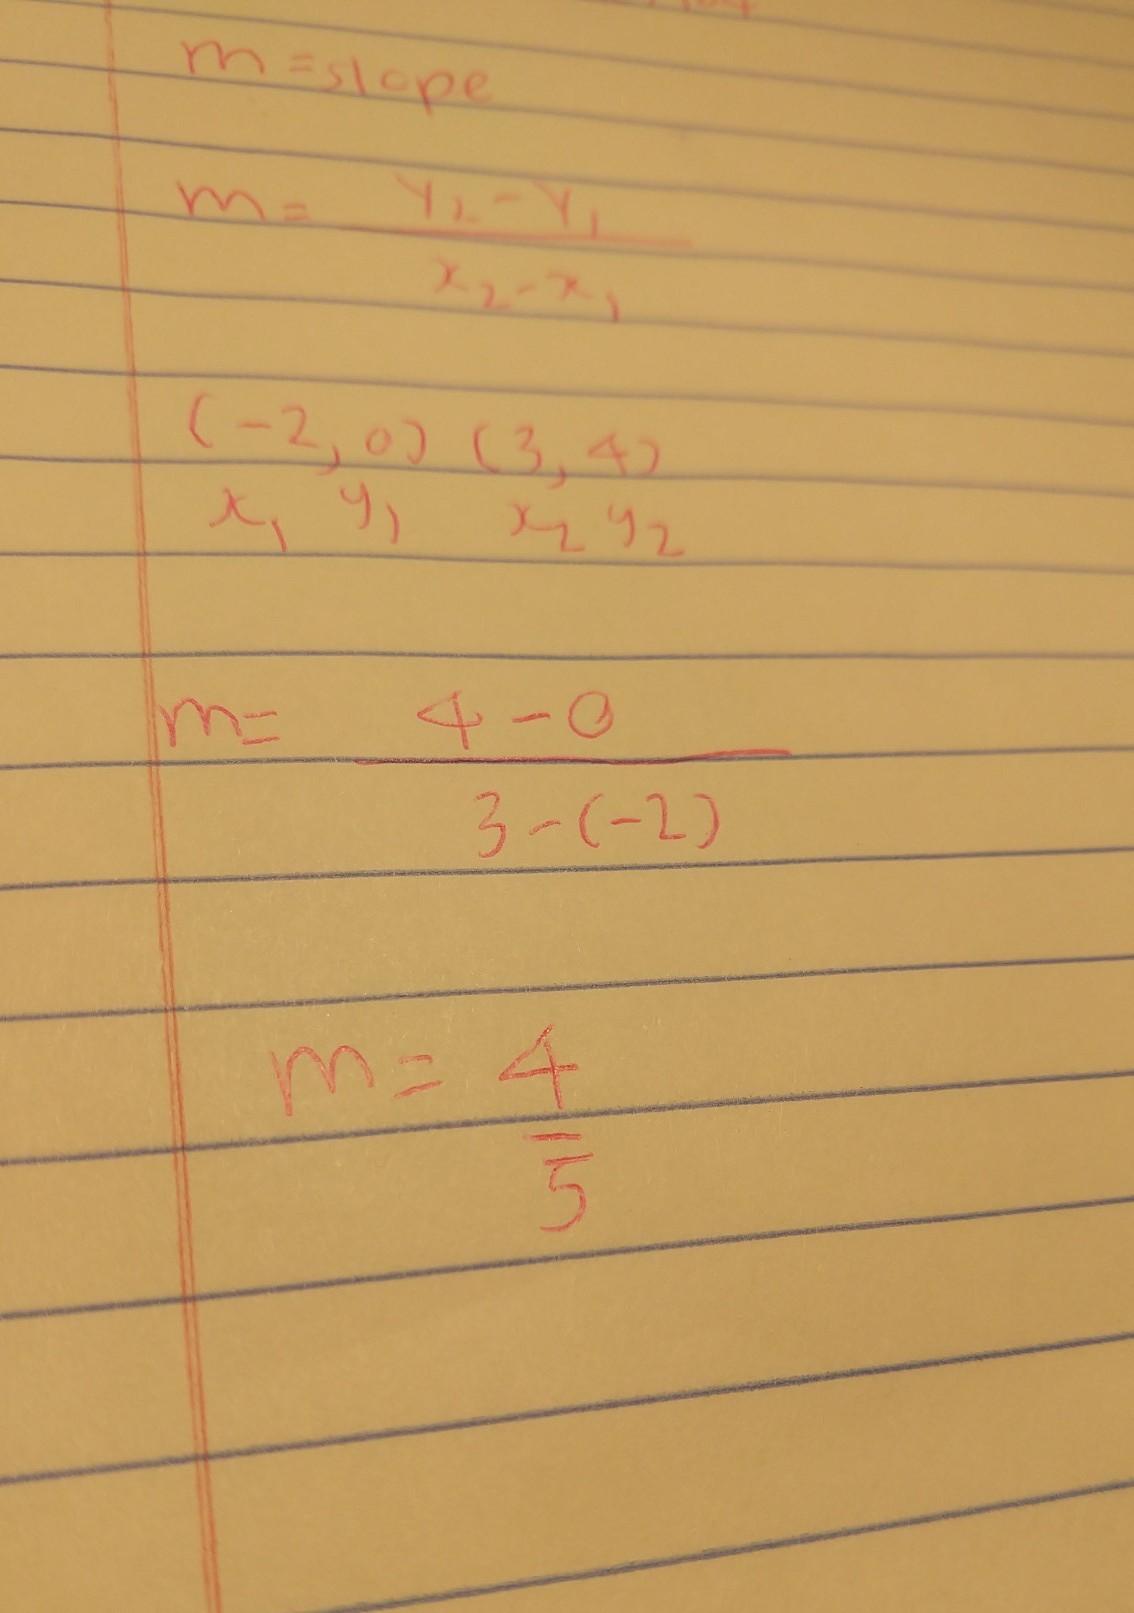 m = slope
m = y₂ - y₁
x₂ - x₁
(-2, 0) (3, 4)
x₁ y₁ x₂ y₂
m = 4 - 0
3 - (-2)
m = 4
5